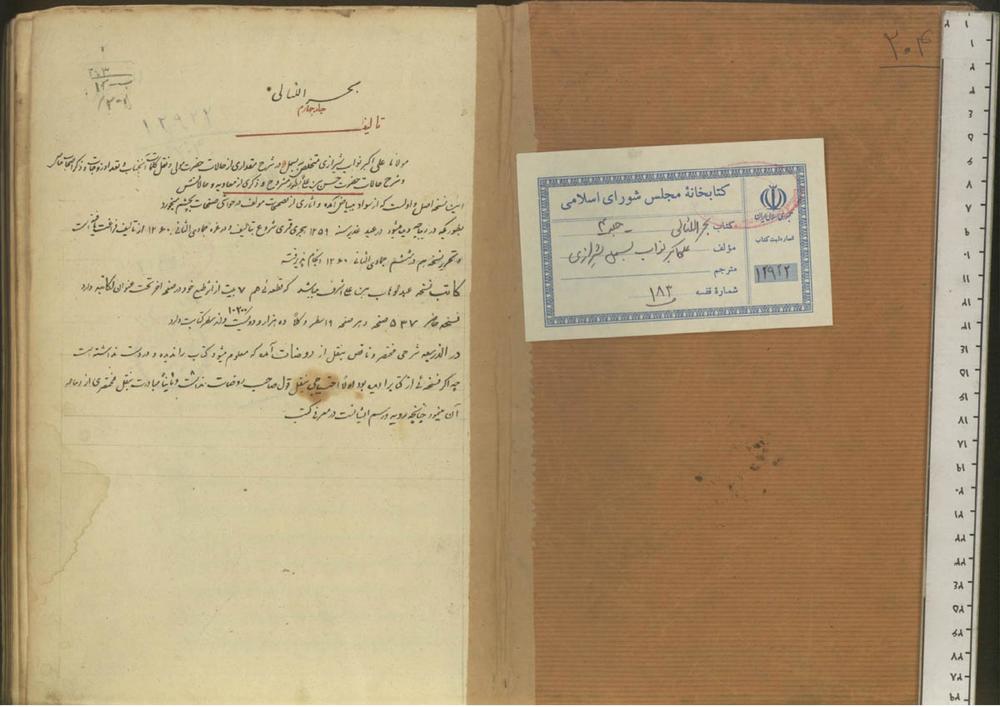 ۲۰۴
کتابخانهٔ مجلس شورای اسلامی
جمهوری اسلامی ایران
کتاب بحر اللئالی - جلد ۴
مؤلف علی اکبر نواب بسمل شیرازی
مترجم
شمارهٔ قفسه ۱۸۳
شماره ثبت کتاب
۱۲۹۲۲
بحر اللئالی
جلد چهارم
تالیف
۱۲۹۲۲
مولانا علی اکبر نواب شیرازی متخلص به بسمل در شرح مقداری از حالات حضرت علی و نقل کلمات آنجناب و تعداد زوجات و ذکر
و شرح حالات حضرت حسن بن علی بطور مشروح و ذکری از معاویه و حالاتش
این نسخه اصل و اولست که از سواد به بیاض آمده و آثاری از تصحیحات مؤلف در حواشی صفحات بچشم میخورد
بطوریکه در دیباچه دیده میشود در عید غدیر سنه ۱۲۵۹ هجری قمری شروع بتالیف و در غره جمادی الثانی ۱۲۶۰ از تالیف فراغت یافته است
و تحریر نسخه هم در ششم جمادی الثانی ۱۲۶۰ انجام پذیرفته
کاتب نسخه عبدالوهاب بن علی اشرف میباشد که قطعه ئی هم ۷ بیت از اثر طبع خود در صفحه آخر تحت عنوان لکاتبه دارد
نسخه حاضر ۵۳۷ صفحه و هر صفحه ۱۹ سطر و کلا ده هزار و دویست و اند سطر کتابت دارد
۱۰۲۰۰
در الذریعه شرحی مختصر و ناقص بنقل از روضات آمده که معلوم میشود کتاب را ندیده و در دست نداشته است
چه اگر نسخه ئی از کتاب را دیده بود اولا احتیاجی بنقل قول صاحب روضات نداشت و ثانیا مبادرت بنقل مختصری از دیباچه
آن مینمود چنانچه رویه و رسم ایشانست در معرفی کتب